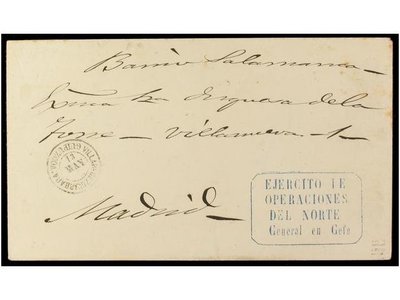 Barrio Salamanca
Exma Sra Duquesa de la
Torre - Villanueva - 1 -
Madrid
14
MAY
EJERCITO DE
OPERACIONES
DEL NORTE
General en Gefe